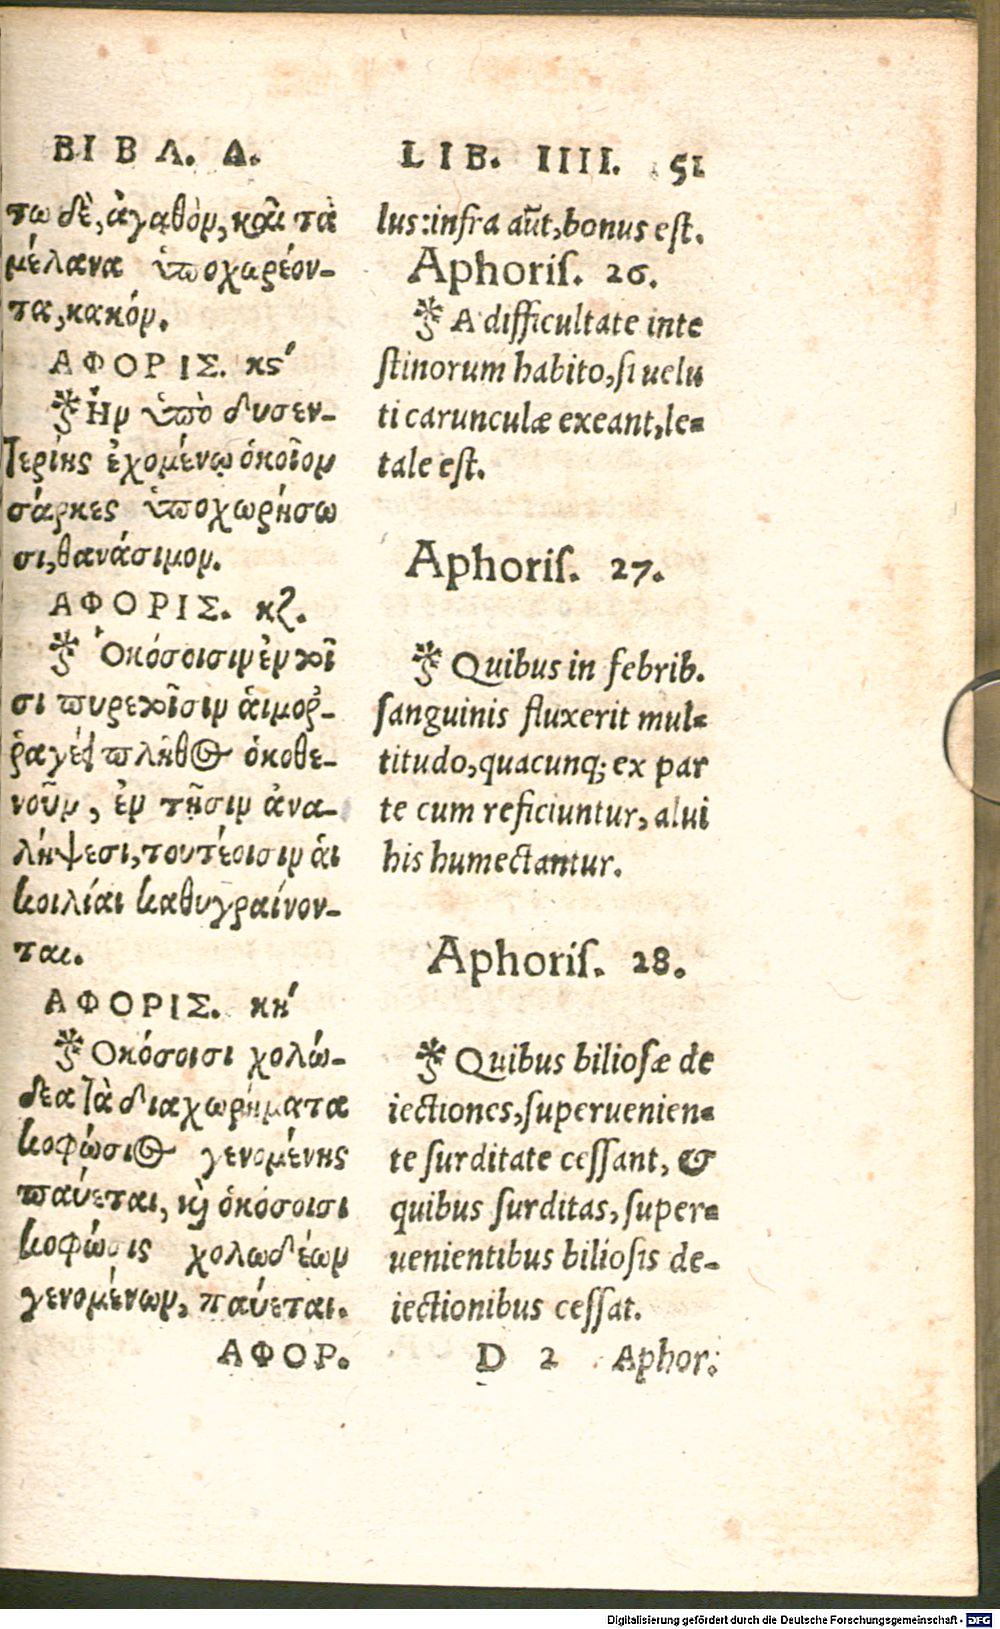 ΒΙΒΛ. Δ.
τω δὲ, ἀγαθὸν, καὶ τὰ
μέλανα ὑποχωρέον-
τα, κακόν.
ΑΦΟΡΙΣ. κς′
Ἢν ὑπὸ δυσεν-
τερίης ἐχομένῳ ὁκοῖον
σάρκες ὑποχωρήσω
σι, θανάσιμον.
ΑΦΟΡΙΣ. κζ.
Ὁκόσοισιν ἐν τοῖ
σι πυρετοῖσιν αἱμοῤ-
ῥαγέει πλῆθος ὁκοθε-
νοῦν, ἐν τῇσιν ἀνα-
λήψεσι, τουτέοισιν αἱ
κοιλίαι καθυγραίνον-
ται.
ΑΦΟΡΙΣ. κη′
Ὁκόσοισι χολώ-
δεα τὰ διαχωρήματα
κοφώσιος γενομένης
παύεται, καὶ ὁκόσοισι
κοφώσις χολωδέων
γενομένων, παύεται.
ΑΦΟΡ.
LIB. IIII. 51
lus: infra aūt, bonus est.
Aphoris. 26.
A difficultate inte
stinorum habito, si uelu
ti carunculæ exeant, le-
tale est.
Aphoris. 27.
Quibus in febrib.
sanguinis fluxerit mul-
titudo, quacunq; ex par
te cum reficiuntur, alui
his humectantur.
Aphoris. 28.
Quibus biliosæ de
iectiones, superuenien-
te surditate cessant, &
quibus surditas, super-
uenientibus biliosis de-
iectionibus cessat.
D 2 Aphor.
Digitalisierung gefördert durch die Deutsche Forschungsgemeinschaft - DFG